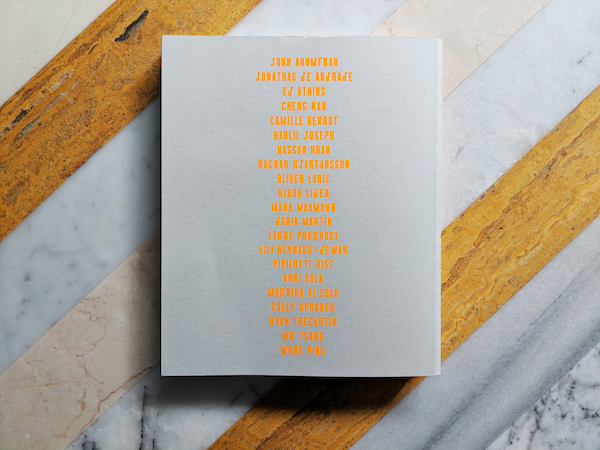 JOHN AKOMFRAH
JONATHAS dE ANDRAdE
Ed ATKINS
CHENG RAN
CAMILLE HENROT
KAHLIL JOSEPH
HASSAN KHAN
RAGNAR KJARTANSSON
OLIVER LARIC
KLARA LIdEN
MAHA MAAMOUN
dARIA MARTIN
LAURE PROUVOST
LILI REYNAUd-dEWAR
PIPILOTTI RIST
ANRI SALA
MOUNIRA AL SOLH
CALLY SPOONER
RYAN TRECARTIN
WU TSANG
WONG PING